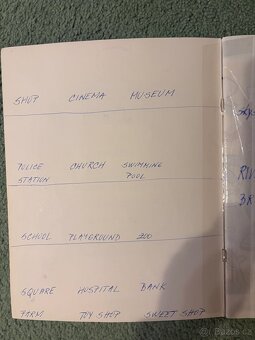 SHOP CINEMA MUSEUM
POLICE STATION CHURCH SWIMMING POOL
SCHOOL PLAYGROUND ZOO
SQUARE HOSPITAL BANK
FARM TOY SHOP SWEET SHOP